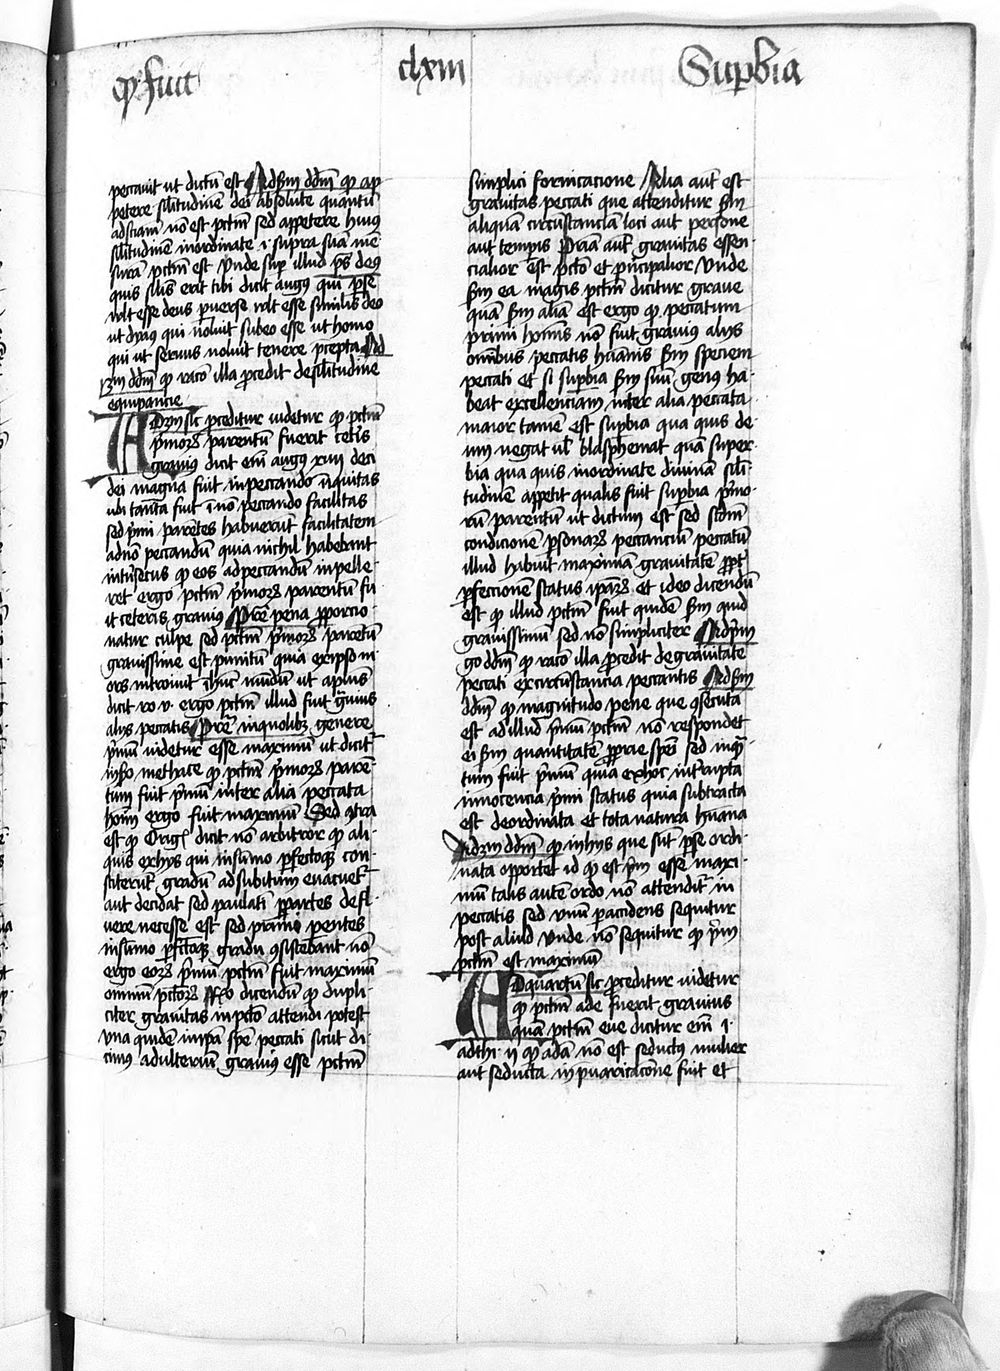 q̄ fuit clxiii Sup̱bia
peccauit ut dictū est Ad s̄m dd̄m qͦ ap
petere sīlitudinē dei absolute quantū
ad sciam nō est pctm̄ sed appetere huiꝰ
sīlitudinē inordinate i. supra suā mē
surā pctm̄ est vnde sup̱ illud ps̄ deꝰ
quis sīlis erit tibi dicit augꝰ qui p̱ se
vult esse deus p̱uerse vult esse similis deo
ut dyaꝰ qui noluit sub eo esse ut homo
qui ut seruus noluit tenere p̄cepta Ad
3m̄ dd̄m qͦ racō illa p̱cedit de sīlitudine
equiparācie
Ad 3m̄ sic p̱ceditur uidetur qͦ pctm̄
p̄moꝝ parentū fuerit cet̄is
grauiꝰ dicit em̄ augꝰ xiiii de ci
dei magna fuit in peccando iniquitas
ubi tanta fuit ī nō peccando facilitas
sed p̄mi parētes habuerūt facilitatem
ad nō peccandū quia nichil habebant
int̄nsecus qͦ eos ad peccandū inpelle
ret ergo pctm̄ p̄moꝝ parentū fu
it ceteris grauiꝰ Pret̄ pena p̱porcio
natur culpe sed pctm̄ p̄moꝝ parētū
grauissime est punitū quia ex ipso m
ors introiuit ī hūc mūdū ut ap̄lus
dicit ro v. ergo pctm̄ illud fuit ḡuius
alijs peccatis Pret̄ in quolibꝫ genere
p̄mū uidetur esse maximū ut dicit̄
in ijͦ methace qͦ pctm̄ p̄moꝝ parē
tum fuit p̄mū inter alia peccata
hoīm ergo fuit maximū Sed ↄtra
est qͦ Orige̅ dicit nō arbitror qͦ ali
quis ex hijs qui in sūmo p̱fectoqꝫ con
stiterūt gradū ad subitum euacuet̄
aut decidat sed paulati p̱ partes defl
uere necesse est sed p̄mi parentes
in sūmo p̱fc̄oqꝫ gradu ↄsistebant nō
ergo eoꝝ p̄mū pctm̄ fuit maximū
omniū pctōꝝ Rͦ dicendū qͦ dupli
citer grauitas in pctō attendi potest
vna quidē in ip̄a sp̄e peccati sicut di
cimus adulteriū grauiꝰ esse pctm̄
simplici fornicacione Alia aut̄ est
grauitas peccati que attenditur s̄m
aliquā circūstanciā loci aut persone
aut tempis Pria aūt grauitas essen
cialior est pctō et principalior vnde
s̄m eā magis pctm̄ dicitur graue
quā s̄m aliā est ergo qͦ peccatum
primi hoīnis nō fuit grauius alijs
omībus peccatis hūanis s̄m speciem
peccati et si sup̱bia s̄m suū genus ha
beat excellenciam inter alia peccata
maior tamē est sup̱bia qua quis de
um negat ut̄ blasphemat quā super
bia qua quis inordinate diuinā sīli
tudinē appetit qualis fuit sup̱bia p̄mo
rū parentū ut dictum est sed scd̄m
condicionē p̱sonaꝝ peccanciū peccatū
illud habuit maximā grauitatē p̱pt̄
p̱feccionē status ip̄aꝝ et ideo dicendū
est qͦ illud pctm̄ fuit quidē s̄m quid
grauissimū sed nō simpliciter Ad p̄m
go dd̄m qͦ racō illa p̱cedit de grauitate
peccati ex circūstancia peccantis Ad s̄m
dd̄m qͦ magnitudo pene que ↄsecuta
est ad illud p̄mū pctm̄ nō respondet
ei s̄m quantitatē p̱p̄rie sp̄ei sed inq̄n
tum fuit p̄mū quia ex hoc int̄rupta
innocencia p̄mi status quia subtracta
est deordinata est tota natura hūana
Ad 3m̄ dd̄m qͦ in hijs que sūt p̱ se ordi
nata opportet id qͦ est p̄m esse maxi
mū talis aūte ordo nō attendit̄ in
peccatis sed vnū p̱ accidens sequitur
post aliud vnde nō sequitur qͦ p̄m
pctm̄ est maximū
Ad quartū sic p̱ceditur uidetur
qͦ pctm̄ ade fuerit grauius
quā pctm̄ eue dicitur em̄ i.
ad thi ii qͦ adā nō est seductꝰ mulier
aut seducta in p̱uaricacōne fuit et